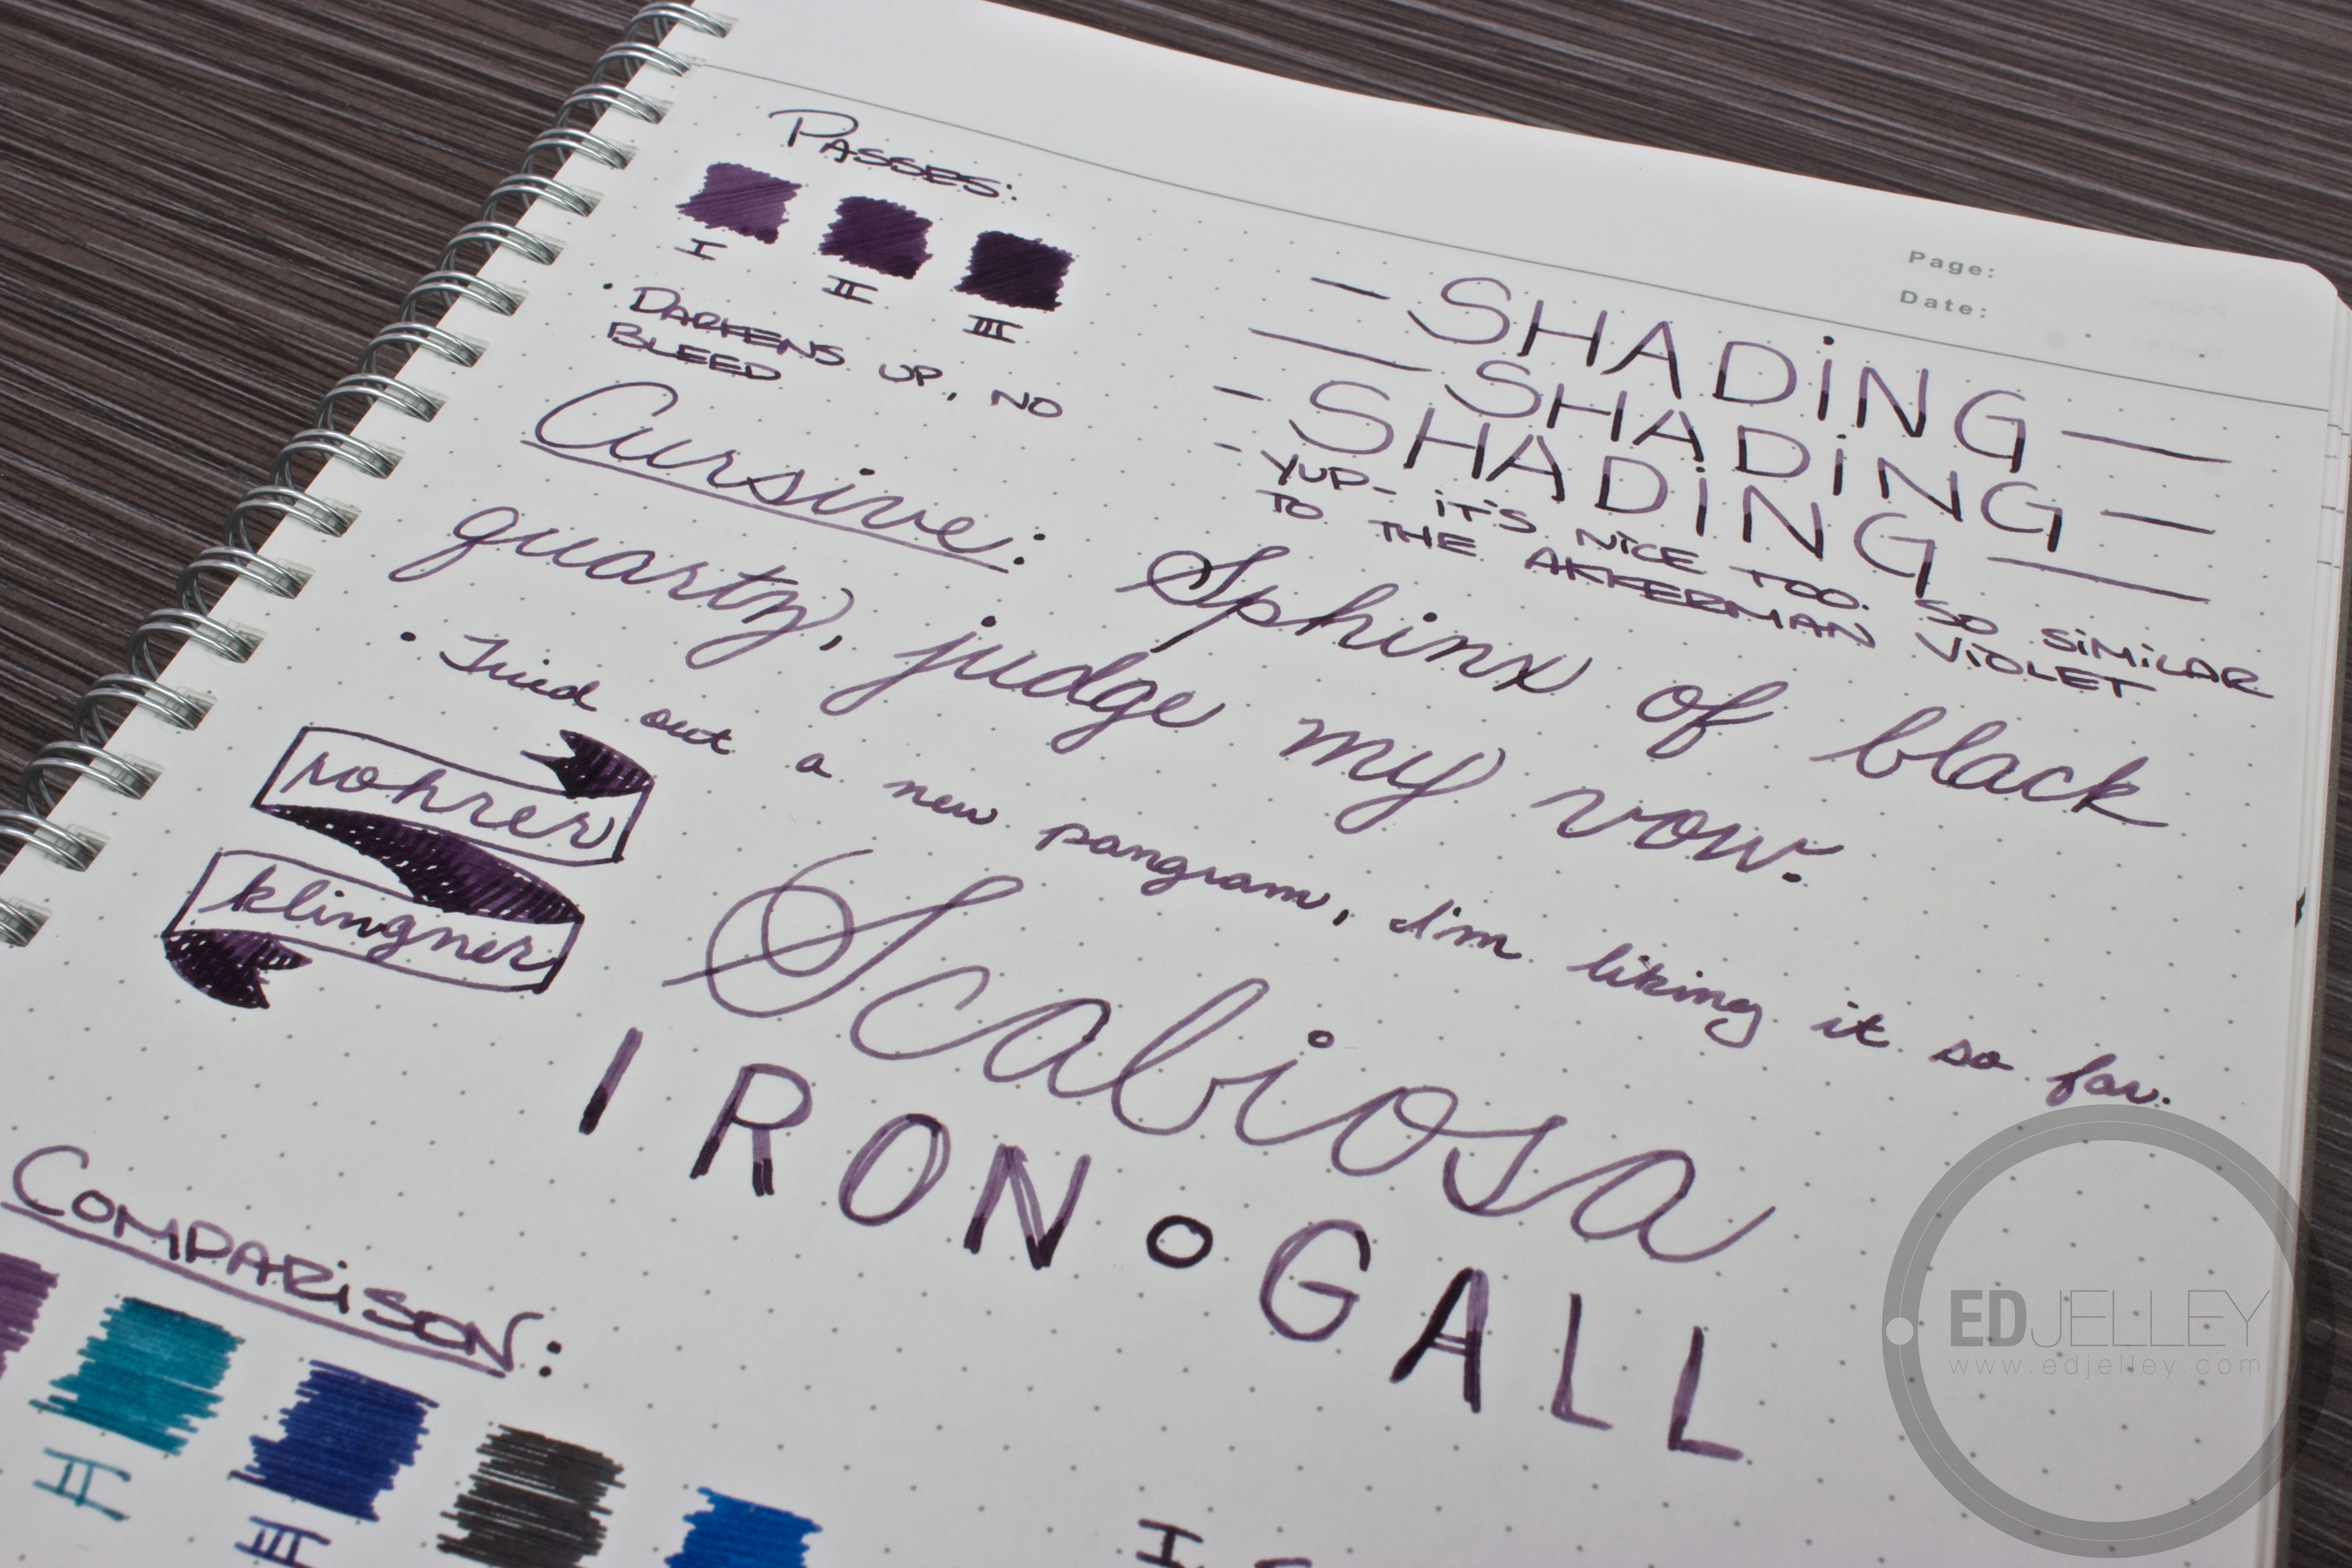 PASSES:
I II III
• DARKENS UP, NO
BLEED
Page:
Date:
- SHADiNG -
- SHADiNG -
- SHADiNG -
- YUP - iT'S NiCE TOO. SO SiMiLAR
TO THE AKKERMAN ViOLET
Cursive: Sphinx of black
quartz, judge my vow.
• Tried out a new pangram, I'm liking it so far.
rohrer
klingner
Scabiosa
IRON • GALL
COMPARiSON:
II III
I
EDJELLEY
www.edjelley.com